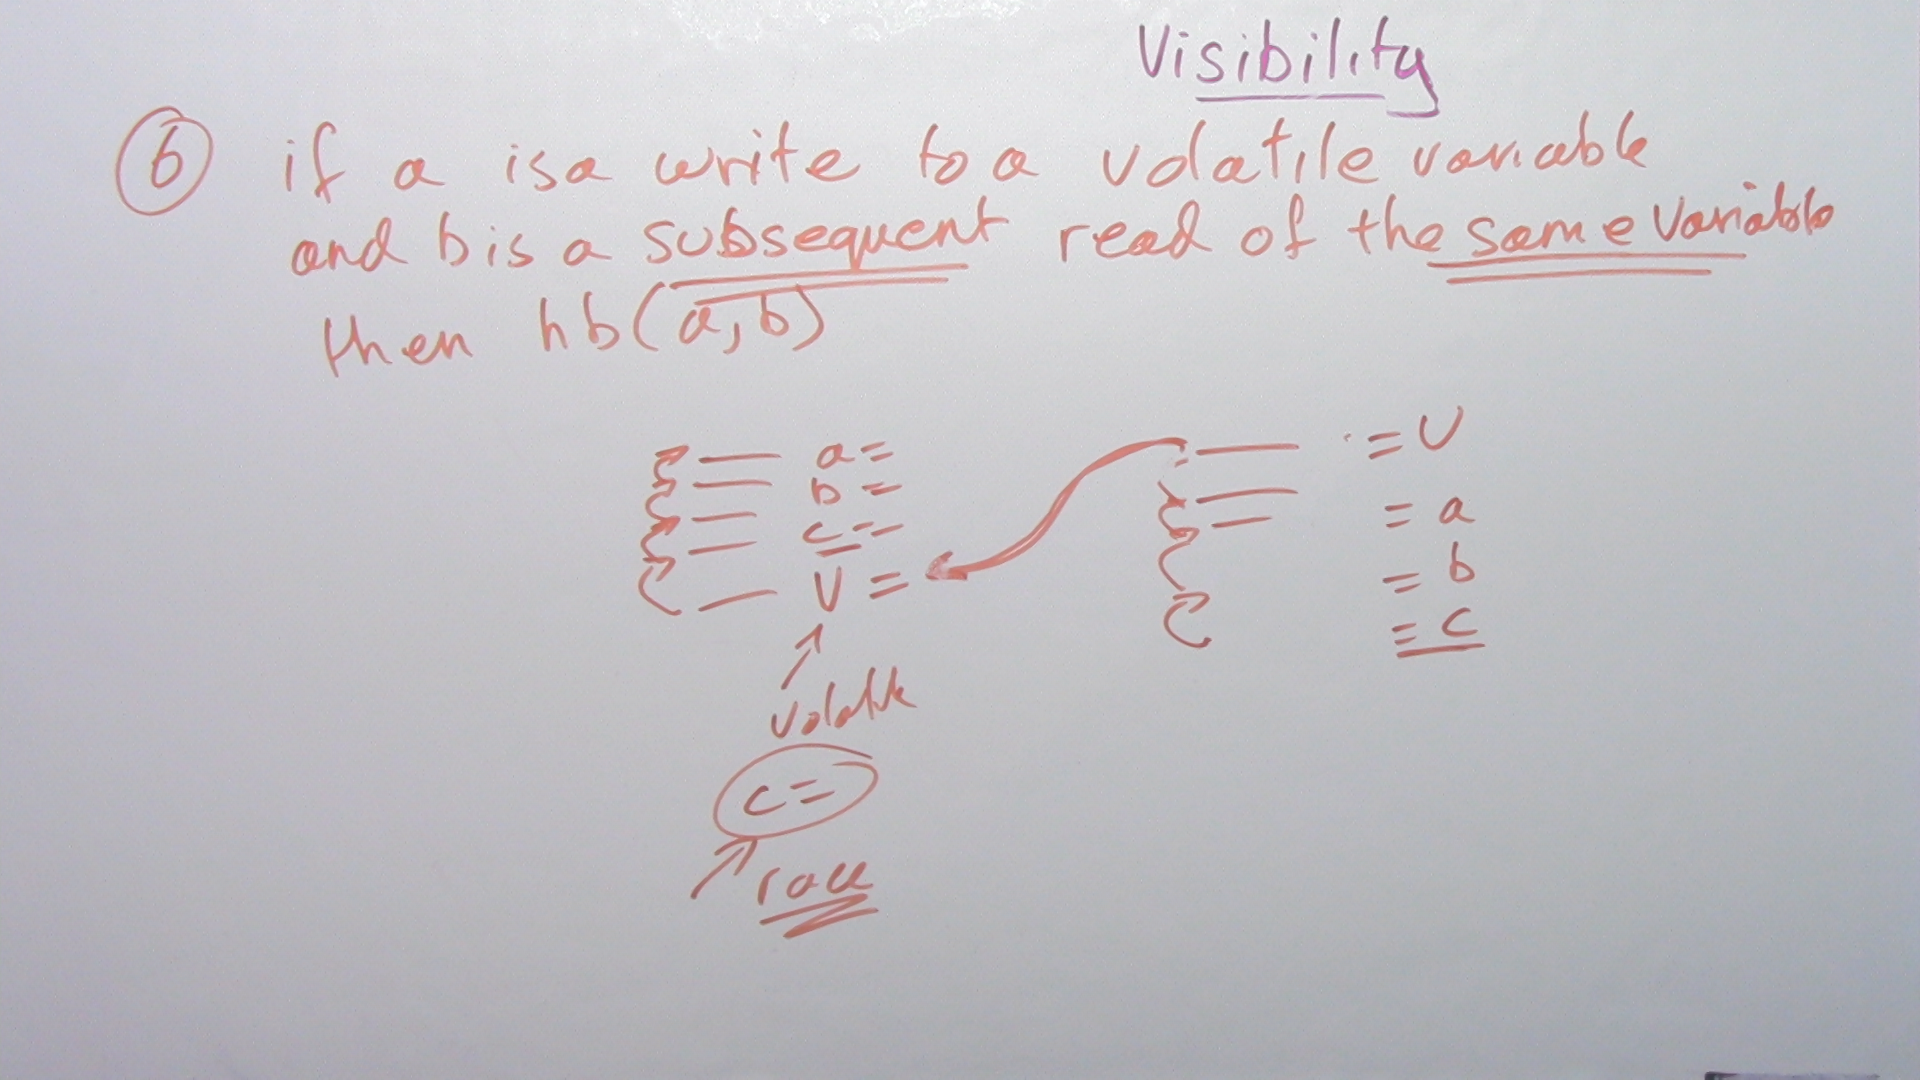 Visibility
6 if a is a write to a volatile variable
and b is a subsequent read of the same variable
then hb(a,b)
a=
b=
c=
V=
volatile
c=
race
=V
=a
=b
=c